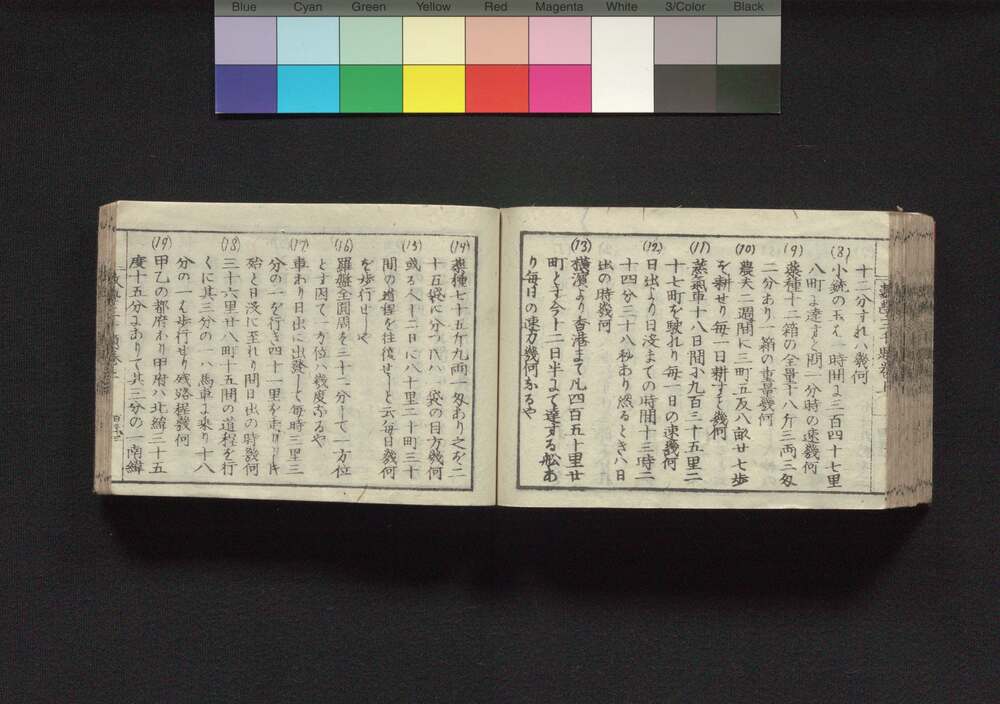 Blue Cyan Green Yellow Red Magenta White 3/Color Black
十二分すれハ幾何
(8)小銃の玉ハ一時間に三百四十七里
八町に達すと問一分時の速幾何
(9)薬種十二箱の全量十八斤三両三匁
二分あり一箱の重量幾何
(10)農夫二週間に三町五反八畝廿七歩
を耕せり毎一日耕すと幾何
(11)蒸気車十八日間小九百三十五里二
十七町を駛れり毎一日の速幾何
(12)日出より日没までの時間十三時二
十四分三十八秒あり然るときハ日
出の時幾何
(13)横濱より香港まて凡四百五十里廿
町とす今十二日半にて達する舩あ
り毎日の速力幾何なるや
(14)薬種七十五斤九両一匁あり之を二
十五袋に分つ代ハ一袋の目方幾何
(15)或る人十二日に八十里二十町三十
間の道程を往復せしと云毎日幾何
を歩行せしや
(16)羅盤全圓周を三十二分して一方位
とす因て一方位ハ幾度なるや
(17)車あり日出に出發して毎時三里三
分の一を行き四十一里を走り
殆と日没に至れり問日出の時幾何
(18)三十六里廿八町十五間の道程を行
くに其三分の一ハ馬車に乗り十八
分の一を歩行せり残路程幾何
(19)甲乙の都府あり甲府ハ北緯三十五
度十五分にありて其三分の一南緯